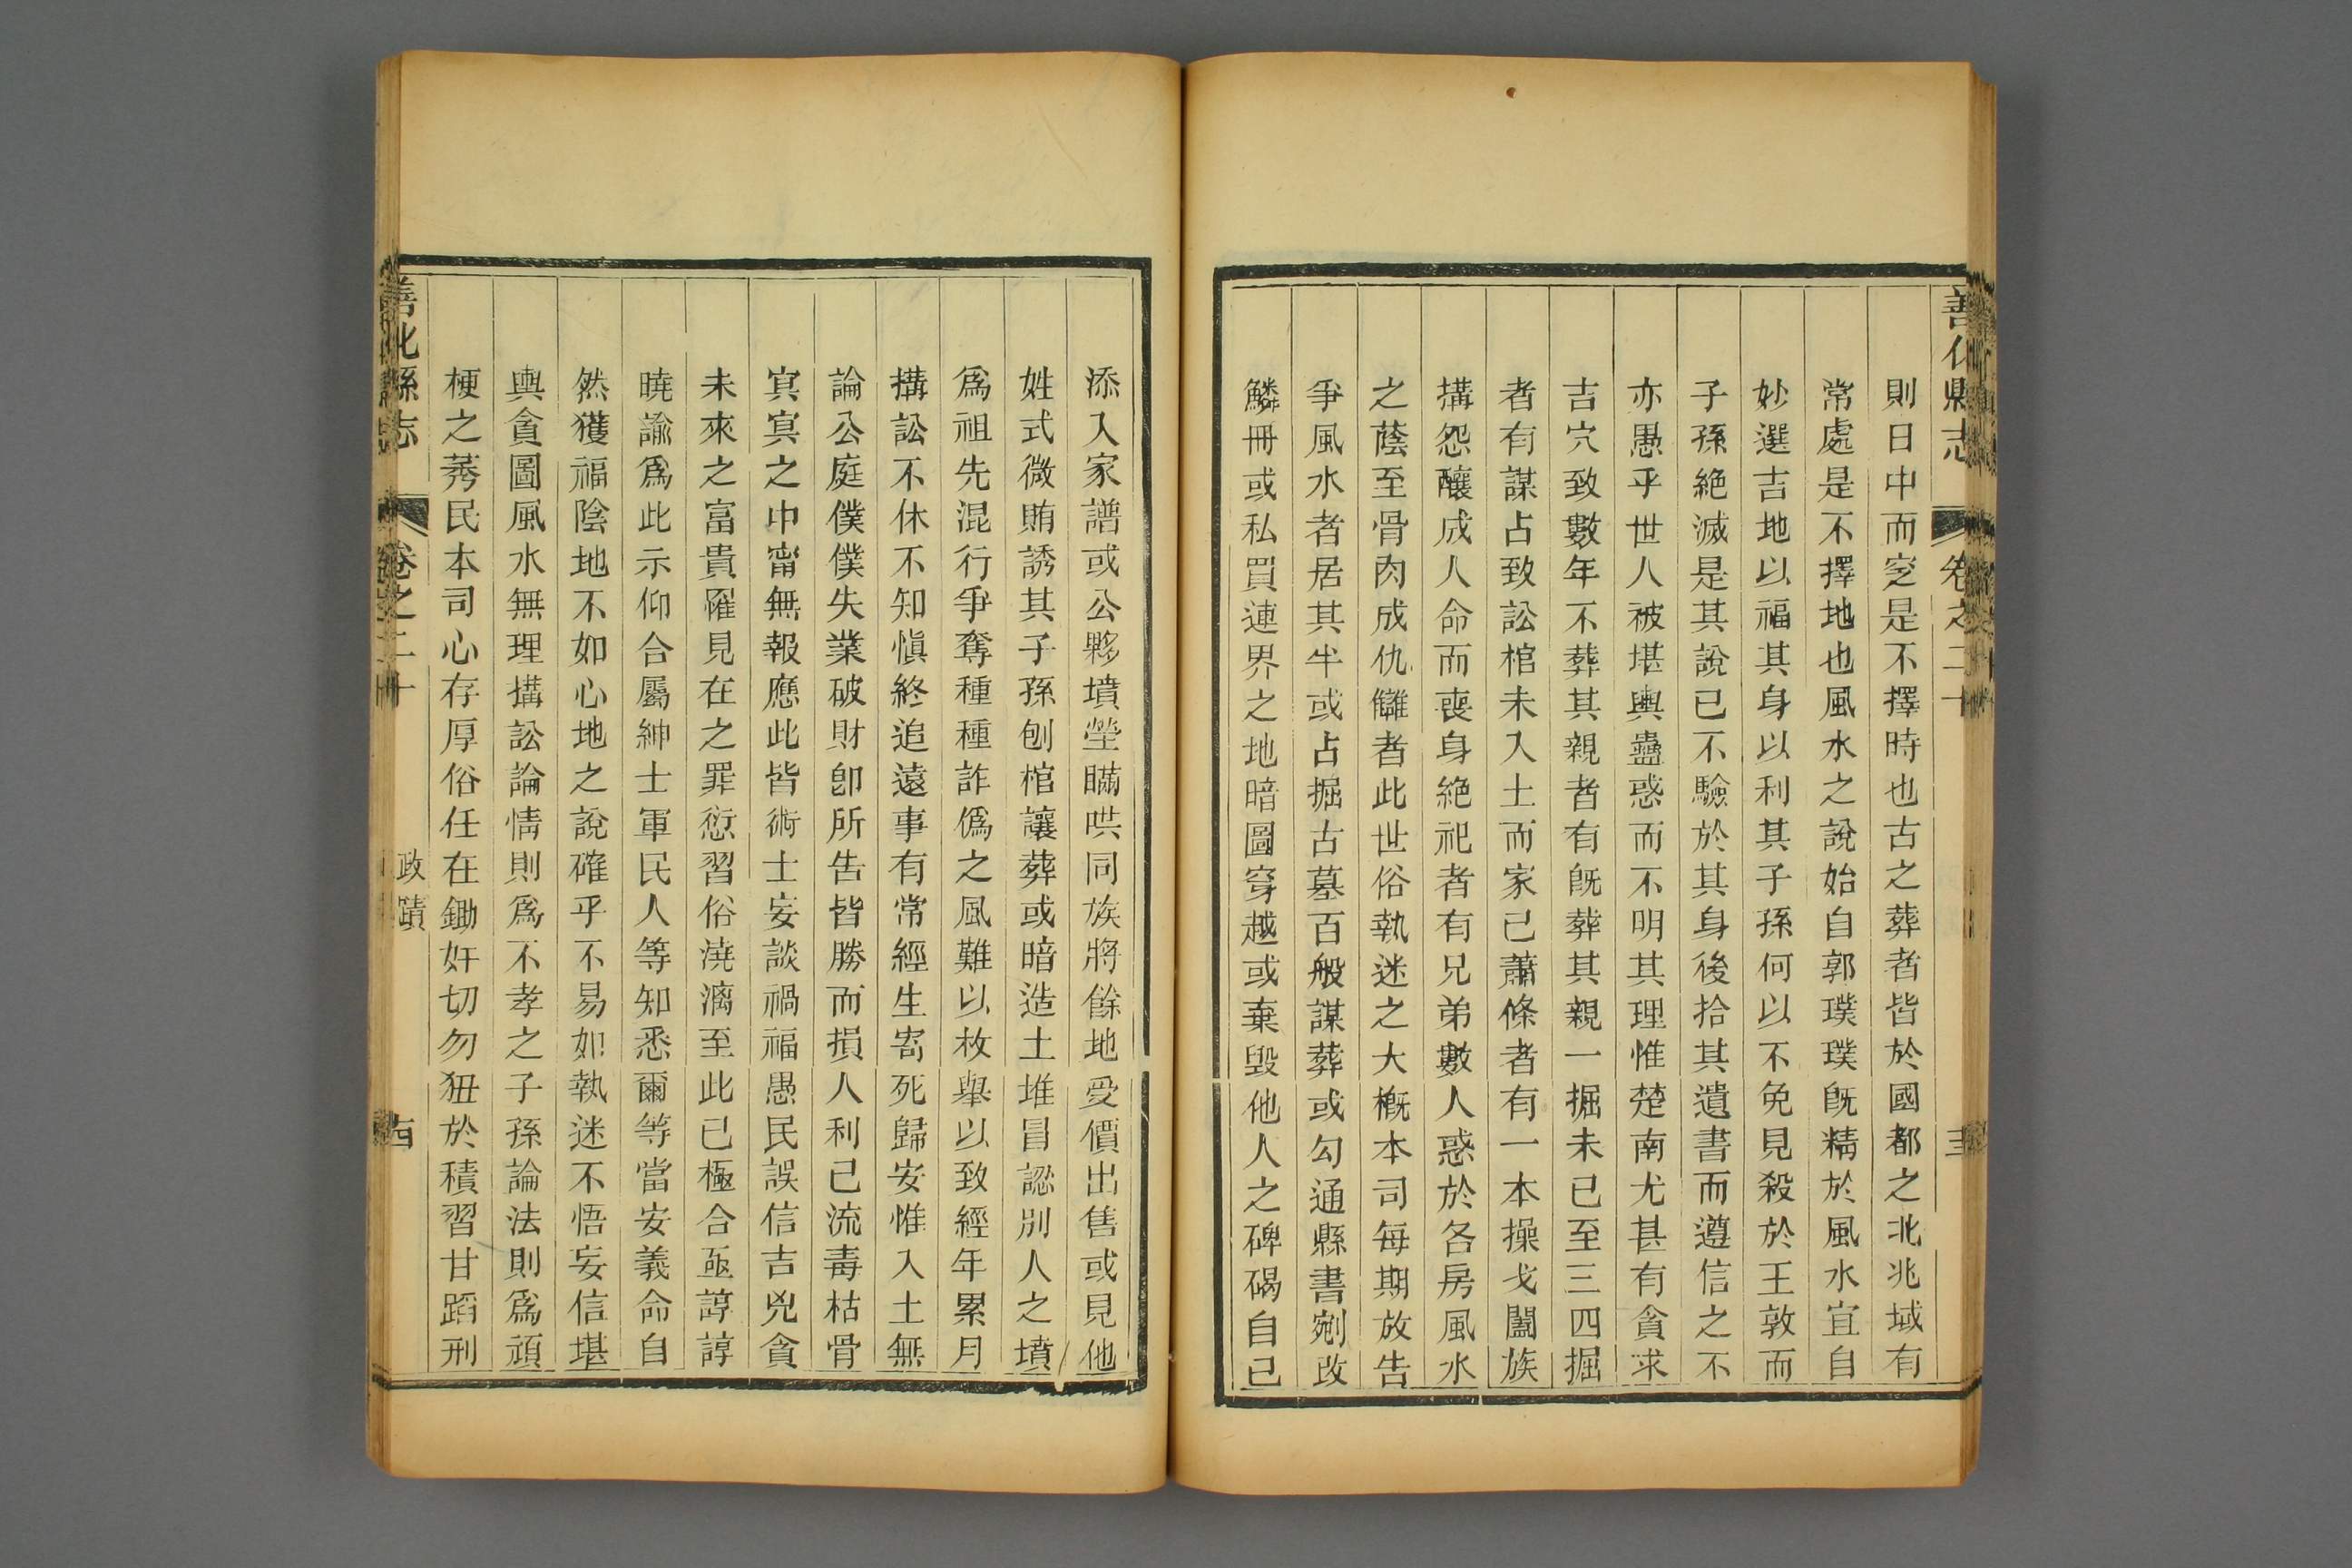 善化縣志
卷之二十
則日中而窆是不擇時也古之葬者皆於國都之北兆域有
常處是不擇地也風水之說始自郭璞璞旣精於風水宜自
妙選吉地以福其身以利其子孫何以不免見殺於王敦而
子孫絕滅是其說已不驗於其身後拾其遺書而遵信之不
亦愚乎世人被堪輿蠱惑而不明其理惟楚南尤甚有貪求
吉穴致數年不葬其親者有旣葬其親一掘未已至三四掘
者有謀占致訟棺未入土而家已蕭條者有一本操戈鬭族
搆怨釀成人命而喪身絕祀者有兄弟數人惑於各房風水
之蔭至骨肉成仇讎者此世俗執迷之大槪本司每期放告
爭風水者居其半或占掘古墓百般謀葬或勾通縣書剜改
鱗冊或私買連界之地暗圖穿越或棄毀他人之碑碣自己
添入家譜或公夥墳塋瞞哄同族將餘地受價出售或見他
姓式微賄誘其子孫刨棺讓葬或暗造土堆冒認別人之墳
爲祖先混行爭奪種種詐僞之風難以枚舉以致經年累月
搆訟不休不知愼終追遠事有常經生寄死歸安惟入土無
論公庭僕僕失業破財卽所告皆勝而損人利己流毒枯骨
冥冥之中甯無報應此皆術士妄談禍福愚民誤信吉兇貪
未來之富貴罹見在之罪愆習俗澆漓至此已極合亟諄諄
曉諭爲此示仰合屬紳士軍民人等知悉爾等當安義命自
然獲福陰地不如心地之說確乎不易如執迷不悟妄信堪
輿貪圖風水無理搆訟論情則爲不孝之子孫論法則爲頑
梗之莠民本司心存厚俗任在鋤奸切勿狃於積習甘蹈刑
善化縣志
卷之二十
政蹟